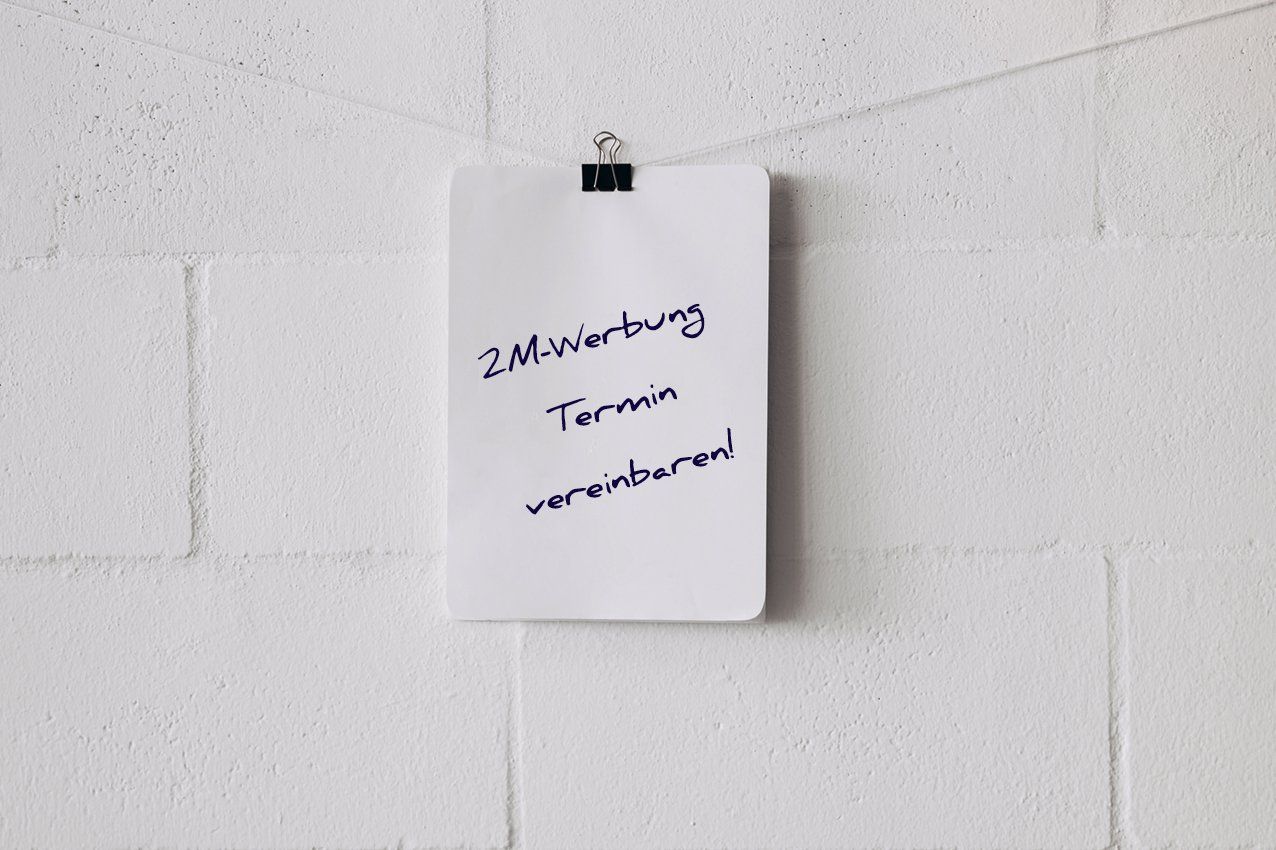 2M-Werbung
Termin
vereinbaren!